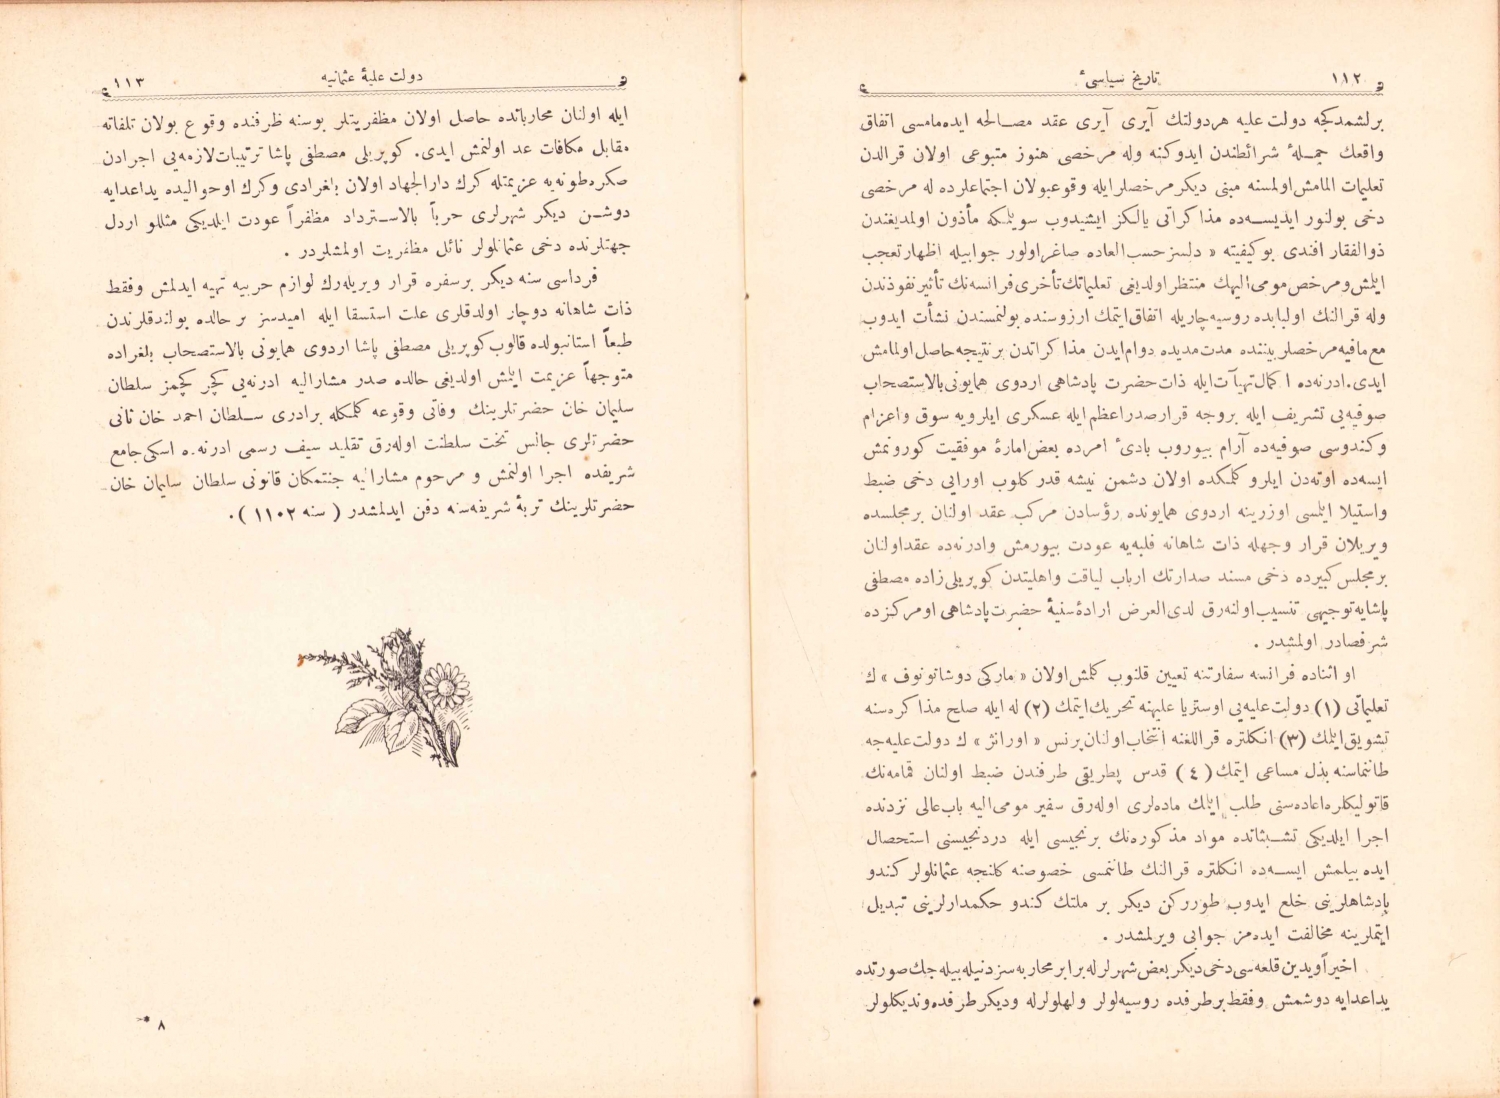 ١١٢
تاريخ سياسئ
برلشمدكجه دولت عليه هردولتك آيرى آيرى عقد مصالحه ايده‌مامسى اتفاق
واقعك جملۀ شرائطندن ايدوكنه وله مرخصى هنوز متبوعى اولان قرالدن
تعليمات المامش اولمسنه مبنى ديكر مرخصلر ايله وقوعبولان اجتماعلرده له مرخصى
دخى بولنور ايديسه‌ده مذاكراتى يالكز ايشيدوب سويلمكه مأذون اولمديغندن
ذوالفقار افندى بوكيفيته « دلسز حسب العاده صاغر اولور جوابيله اظهار تعجب
ايلمش و مرخص مومى اليهك منتظر اولديغى تعليماتك تأخرى فرانسه‌نك تأثير نفوذندن
وله قرالنك اولبابده روسيه چاريله اتفاق ايتمك ارزوسنده بولنمسندن نشأت ايدوب
مع مافيه مرخصلر بيننده مدت مديده دوام ايدن مذاكراتدن بر نتيجه حاصل اولمامش
ايدى. ادرنه‌ده اكمال تهيآت ايله ذات حضرت پادشاهى اردوى همايونى بالاستصحاب
صوفيه‌يى تشريف ايله بروجه قرار صدراعظم ايله عسكرى ايلرويه سوق واعزام
وكندوسى صوفيه‌ده آرام بيوروب بادئ امرده بعض امارۀ موفقيت كورونمش
ايسه‌ده اوته‌دن ايلرو كلمكده اولان دشمن نيشه قدر كلوب اورايى دخى ضبط
واستيلا ايلمسى اوزرينه اردوى همايونده رؤسادن مركب عقد اولنان برمجلسده
ويريلان قرار وجهله ذات شاهانه فلبه‌يه عودت بيورمش وادرنه‌ده عقد اولنان
برمجلس كبيرده دخى مسند صدارتك ارباب لياقت واهليتدن كوپريلى زاده مصطفى
پاشايه توجيهى تنسيب اولنه‌رق لدى العرض ارادۀ سنيۀ حضرت پادشاهى اومركزده
شرفصادر اولمشدر .
او اثناده فرانسه سفارتنه تعيين قلنوب كلمش اولان « ماركى دوشاتونوف » ك
تعليماتى (١) دولت عليه‌يى اوستريا عليهنه تحريك ايتمك (٢) له ايله صلح مذاكره‌سنه
تشويق ايلمك (٣) انكلتره قراللغنه انتخاب اولنان پرنس « اورانژ » ك دولت عليه‌جه
طانماسنه بذل مساعى ايتمك (٤) قدس پطريقى طرفندن ضبط اولنان قمامه‌نك
قاتوليكلره اعاده‌سنى طلب ايلمك ماده‌لرى اوله‌رق سفير مومى اليه باب عالى نزدنده
اجرا ايلديكى تشبثاتده مواد مذكوره‌نك برنجيسى ايله دردنجيسنى استحصال
ايده بيلمش ايسه‌ده انكلتره قرالنك طانمسى خصوصنه كلنجه عثمانلولر كندو
پادشاهلرينى خلع ايدوب طوررکن ديكر بر ملتك كندو حكمدارلرينى تبديل
ايتملرينه مخالفت ايده‌مز جوابى ويرلمشدر .
اخيراً ويدين قلعه‌سى دخى ديكر بعض شهرلرله برابر محاربه‌سز دنيله‌بيله‌جك صورتده
يداعدايه دوشمش وفقط برطرفده روسيه‌لولر ولهلولرله وديكر طرفده ونديكلولر
١١٣
دولت عليۀ عثمانيه
ايله اولنان محارباتده حاصل اولان مظفريتلر بوسنه ظرفنده وقوع بولان تلفاته
مقابل مكافات عد اولنمش ايدى. كوپريلى مصطفى پاشا ترتيبات لازمه‌يى اجرادن
صكره طونه‌يه عزيمتله كرك دارالجهاد اولان بلغرادى وكرك اوحواليده يداعدايه
دوشن ديكر شهرلرى حرباً بالاسترداد مظفراً عودت ايلديكى مثللو اردل
جهتلرنده دخى عثمانلولر نائل مظفريت اولمشلردر .
فرداسى سنه ديكر برسفره قرار ويريله‌رك لوازم حربيه تهيه ايدلمش وفقط
ذات شاهانه دوچار اولدقلرى علت استسقا ايله اميدسز بر حالده بولندقلرندن
طبعاً استانبولده قالوب كوپريلى مصطفى پاشا اردوى همايونى بالاستصحاب بلغراده
متوجهاً عزيمت ايلمش اولديغى حالده صدر مشاراليه ادرنه‌يى كچر كچمز سلطان
سليمان خان حضرتلرينك وفاتى وقوعه كلمكله برادرى سلطان احمد خان ثانى
حضرتلرى جالس تخت سلطنت اوله‌رق تقليد سيف رسمى ادرنه‌ده اسكى جامع
شريفده اجرا اولنمش و مرحوم مشاراليه جنتمكان قانونى سلطان سليمان خان
حضرتلرينك تربۀ شريفه‌سنه دفن ايدلمشدر ( سنه ١١٠٢ ).
٨ *